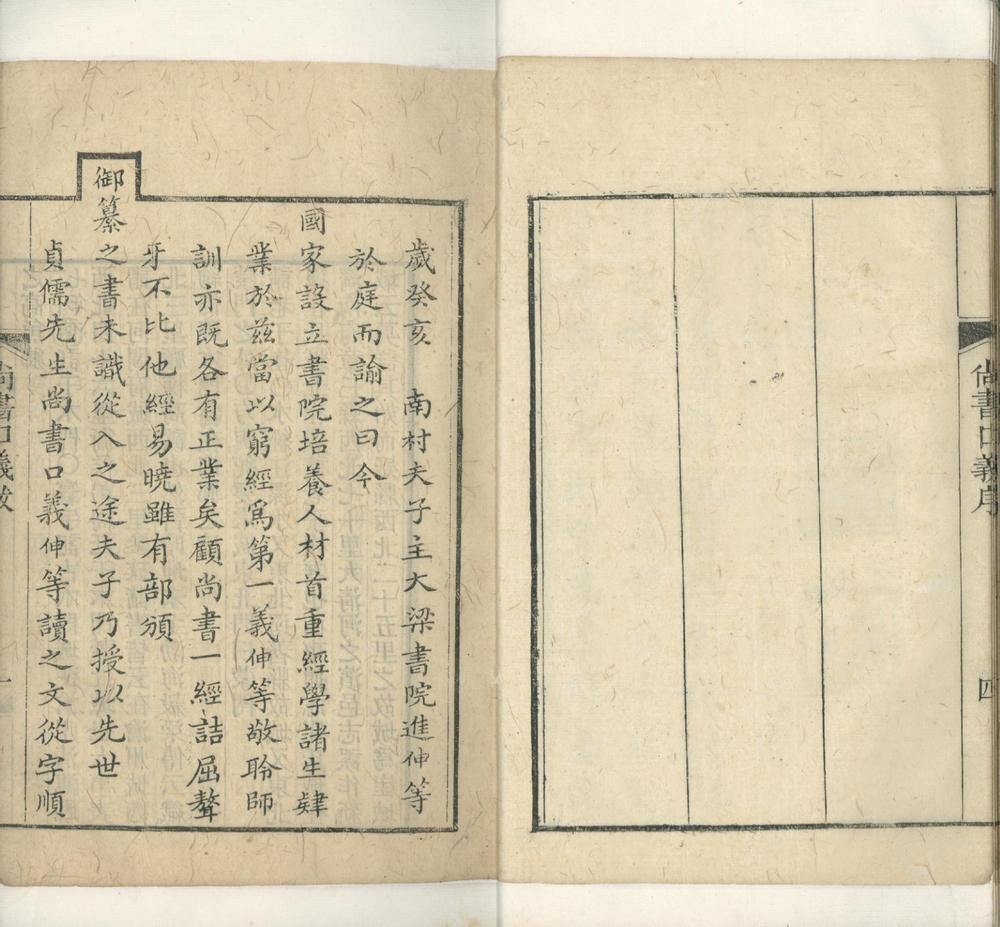 尚書口義序
四
歲癸亥　南村夫子主大梁書院進伸等
於庭而諭之曰今
國家設立書院培養人材首重經學諸生肄
業於茲當以窮經爲第一義伸等敬聆師
訓亦旣各有正業矣顧尚書一經詰屈聱
牙不比他經易曉雖有部頒
御纂之書未識從入之途夫子乃授以先世
貞儒先生尚書口義伸等讀之文從字順
尚書口義跋
一